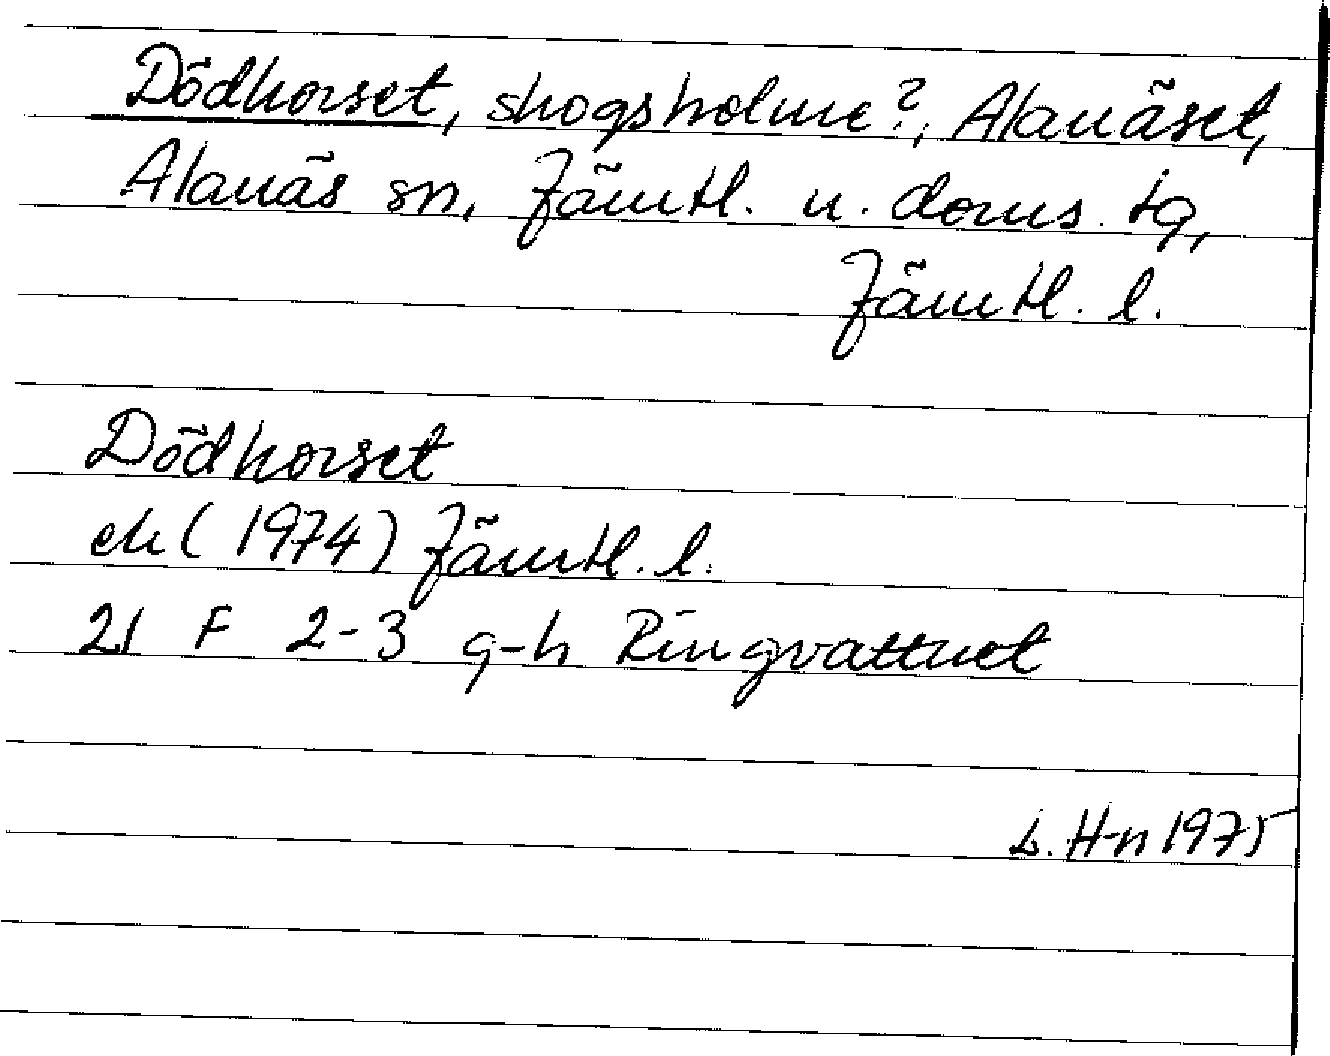 Dödkorset, skogsholme?, Alanäset,
Alanäs sn, Jämtl. n. doms. tg,
Jämtl. l.
Dödkorset
ek (1974) Jämtl. l.
21 F 2-3 g-h Ringvattnet
L. H-n 1975